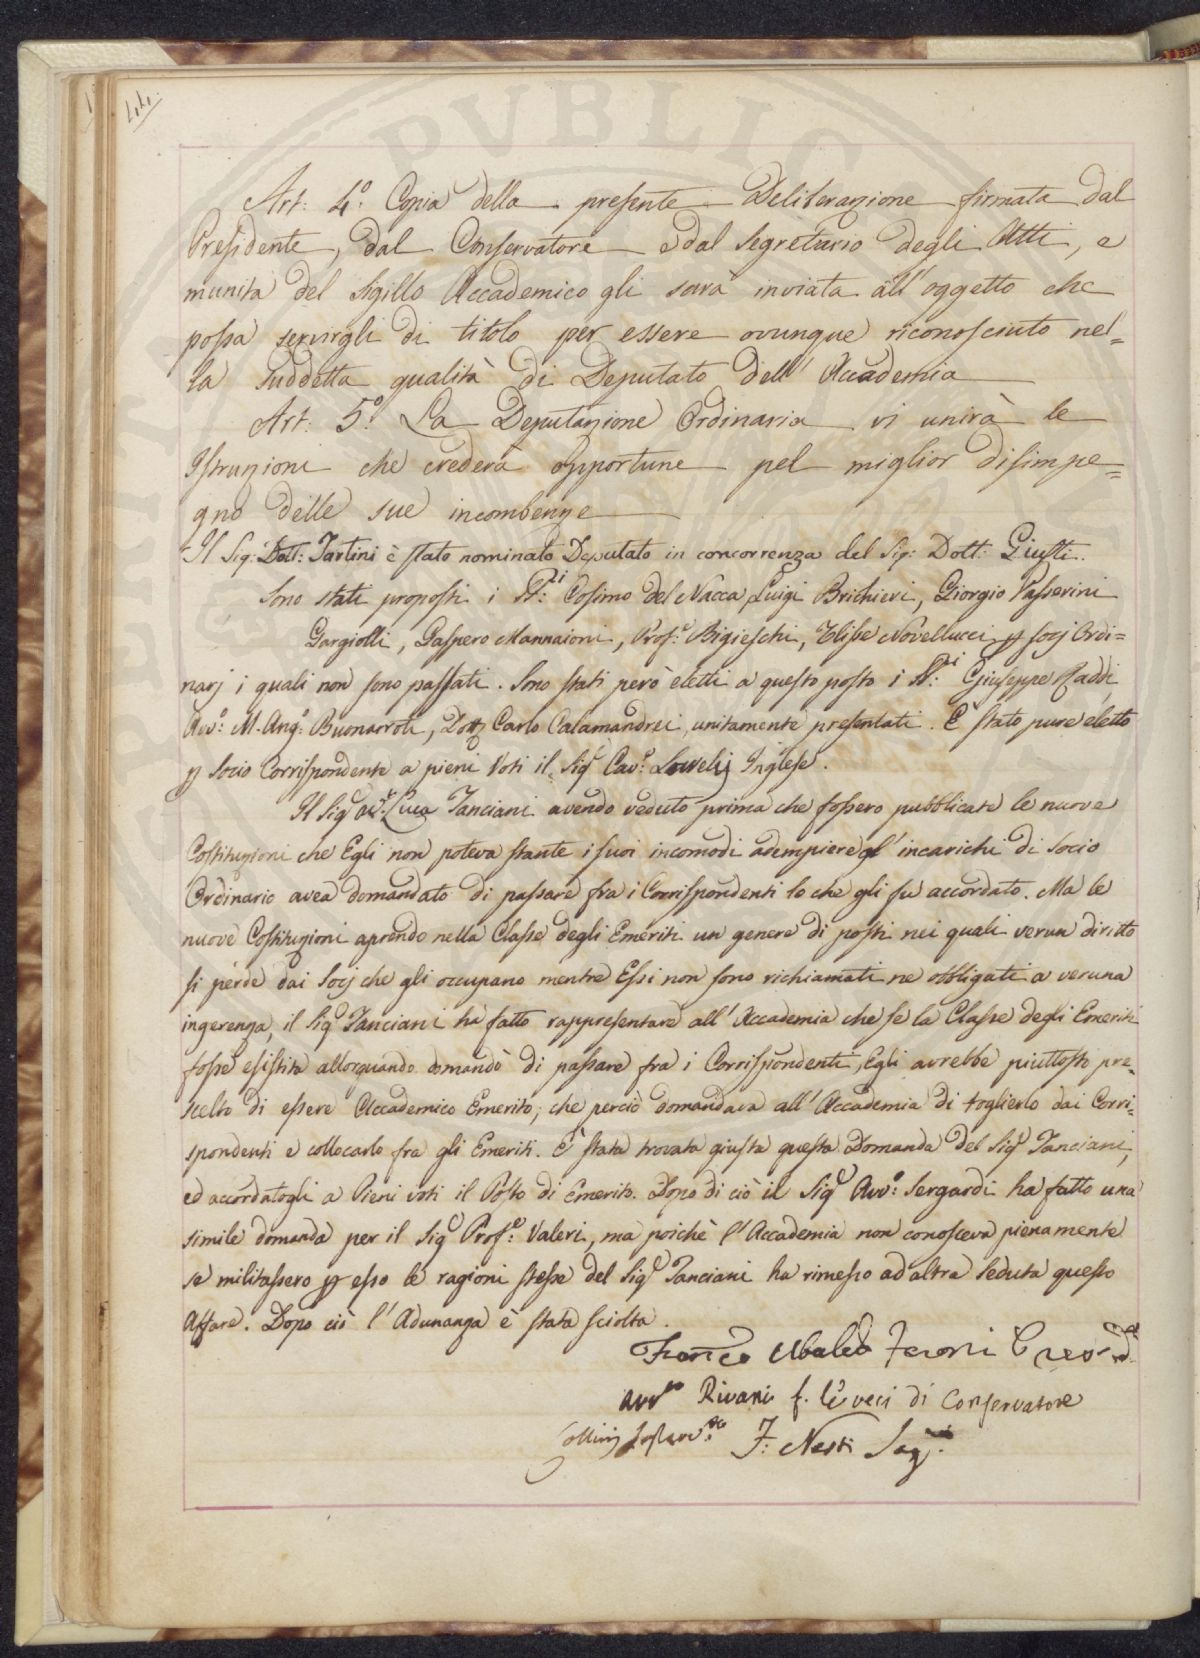 44.
Art: 4.° Copia della presente Deliberazione firmata dal
Presidente, dal Conservatore e dal Segretario degli Atti, e
munita del Sigillo Accademico gli sarà inviata all'oggetto che
possa servirgli di titolo per essere ovunque riconosciuto nel=
la suddetta qualità di Deputato dell'Accademia
Art: 5.° La Deputazione Ordinaria vi unirà le
Istruzioni che crederà opportune pel miglior disimpe=
gno delle sue incombenze
Il Sig: Dott: Tartini è stato nominato Deputato in concorrenza del Sig: Dott: Giusti.
Sono stati proposti i SS:ri Cosimo del Nacca, Luigi Brichieri, Giorgio Passerini
Gargiolli, Gaspero Mannaioni, Prof.e Bigieschi, Elisse Novellucci p socj Ordi=
narj i quali non sono passati. Sono stati però eletti a questo posto i SS:ri Giuseppe Raddi
Avv.° M. Ang.° Buonarroti, Dott Carlo Calamandrei unitamente presentati. È stato pure eletto
p Socio Corrispondente a pieni Voti il Sigr Cav.e Inglese.
Il Sigr Avv.° Luca Tanciani avendo veduto prima che fossero pubblicate le nuove
Costituzioni che Egli non poteva stante i suoi incomodi adempiere gl'incarichi di Socio
Ordinario avea domandato di passare fra i Corrispondenti lo che gli fu accordato. Ma le
nuove Costituzioni aprendo nella Classe degli Emeriti un genere di posti nei quali verun diritto
si perde dai Socj che gli occupano mentre Essi non sono richiamati ne obbligati a veruna
ingerenza, il Sigr Tanciani ha fatto rappresentare all'Accademia che se la Classe degli Emeriti
fosse esistita allorquando domandò di passare fra i Corrispondenti, Egli avrebbe piuttosto pre=
scelto di essere Accademico Emerito; che perciò domandava all'Accademia di toglierlo dai Corri=
spondenti e collocarlo fra gli Emeriti. È stata trovata giusta questa Domanda del Sigr Tanciani,
ed accordatogli a Pieni voti il Posto di Emerito. Dopo di ciò il Sigr Avv.° Sergardi ha fatto una
simile domanda per il Sigr Prof.e Valeri, ma poichè l'Accademia non conosceva pienamente
se militassero p esso le ragioni stesse del Sigr Tanciani ha rimesso ad altra Seduta questo
Affare. Dopo ciò l'Adunanza è stata sciolta.
Franc.o Ubaldo Feroni Presid.
Avv.to Rivani f. le veci di Conservatore
F: Nesti Seg.